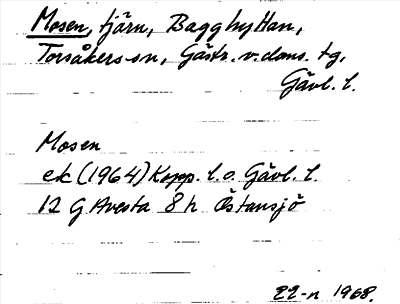 Mosen, tjärn, Bagghyttan,
Torsåkers sn, Gästr. v. doms. tg,
Gävl. l.
Mosen
ek (1964) Kopp. l. o. Gävl. l.
12 G Avesta 8 h Östansjö
22-n 1968.